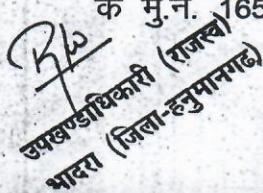 के मु.नं. 165
उपखण्डाधिकारी (राजस्व)
भादरा (जिला-हनुमानगढ़)